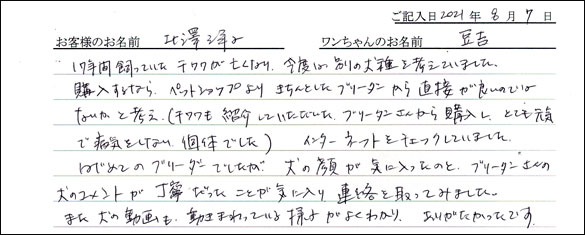 ご記入日 2021年 8月 7日
お客様のお名前 北澤 ワンちゃんのお名前 豆吉
17年間飼っていたチワワが亡くなり、今度は別の犬種を考えていました。
購入するなら、ペットショップよりきちんとしたブリーダーから直接が良いのでは
ないかと考え、(チワワも紹介していただいた、ブリーダーさんから購入し、とても元気
で病気をしない個体でした) インターネットをチェックしていました。
はじめてのブリーダーでしたが、犬の顔が気に入ったのと、ブリーダーさんの
犬のコメントが丁寧だったことが気に入り連絡を取ってみました。
また犬の動画も、動きまわっている様子がよくわかり、ありがたかったです。